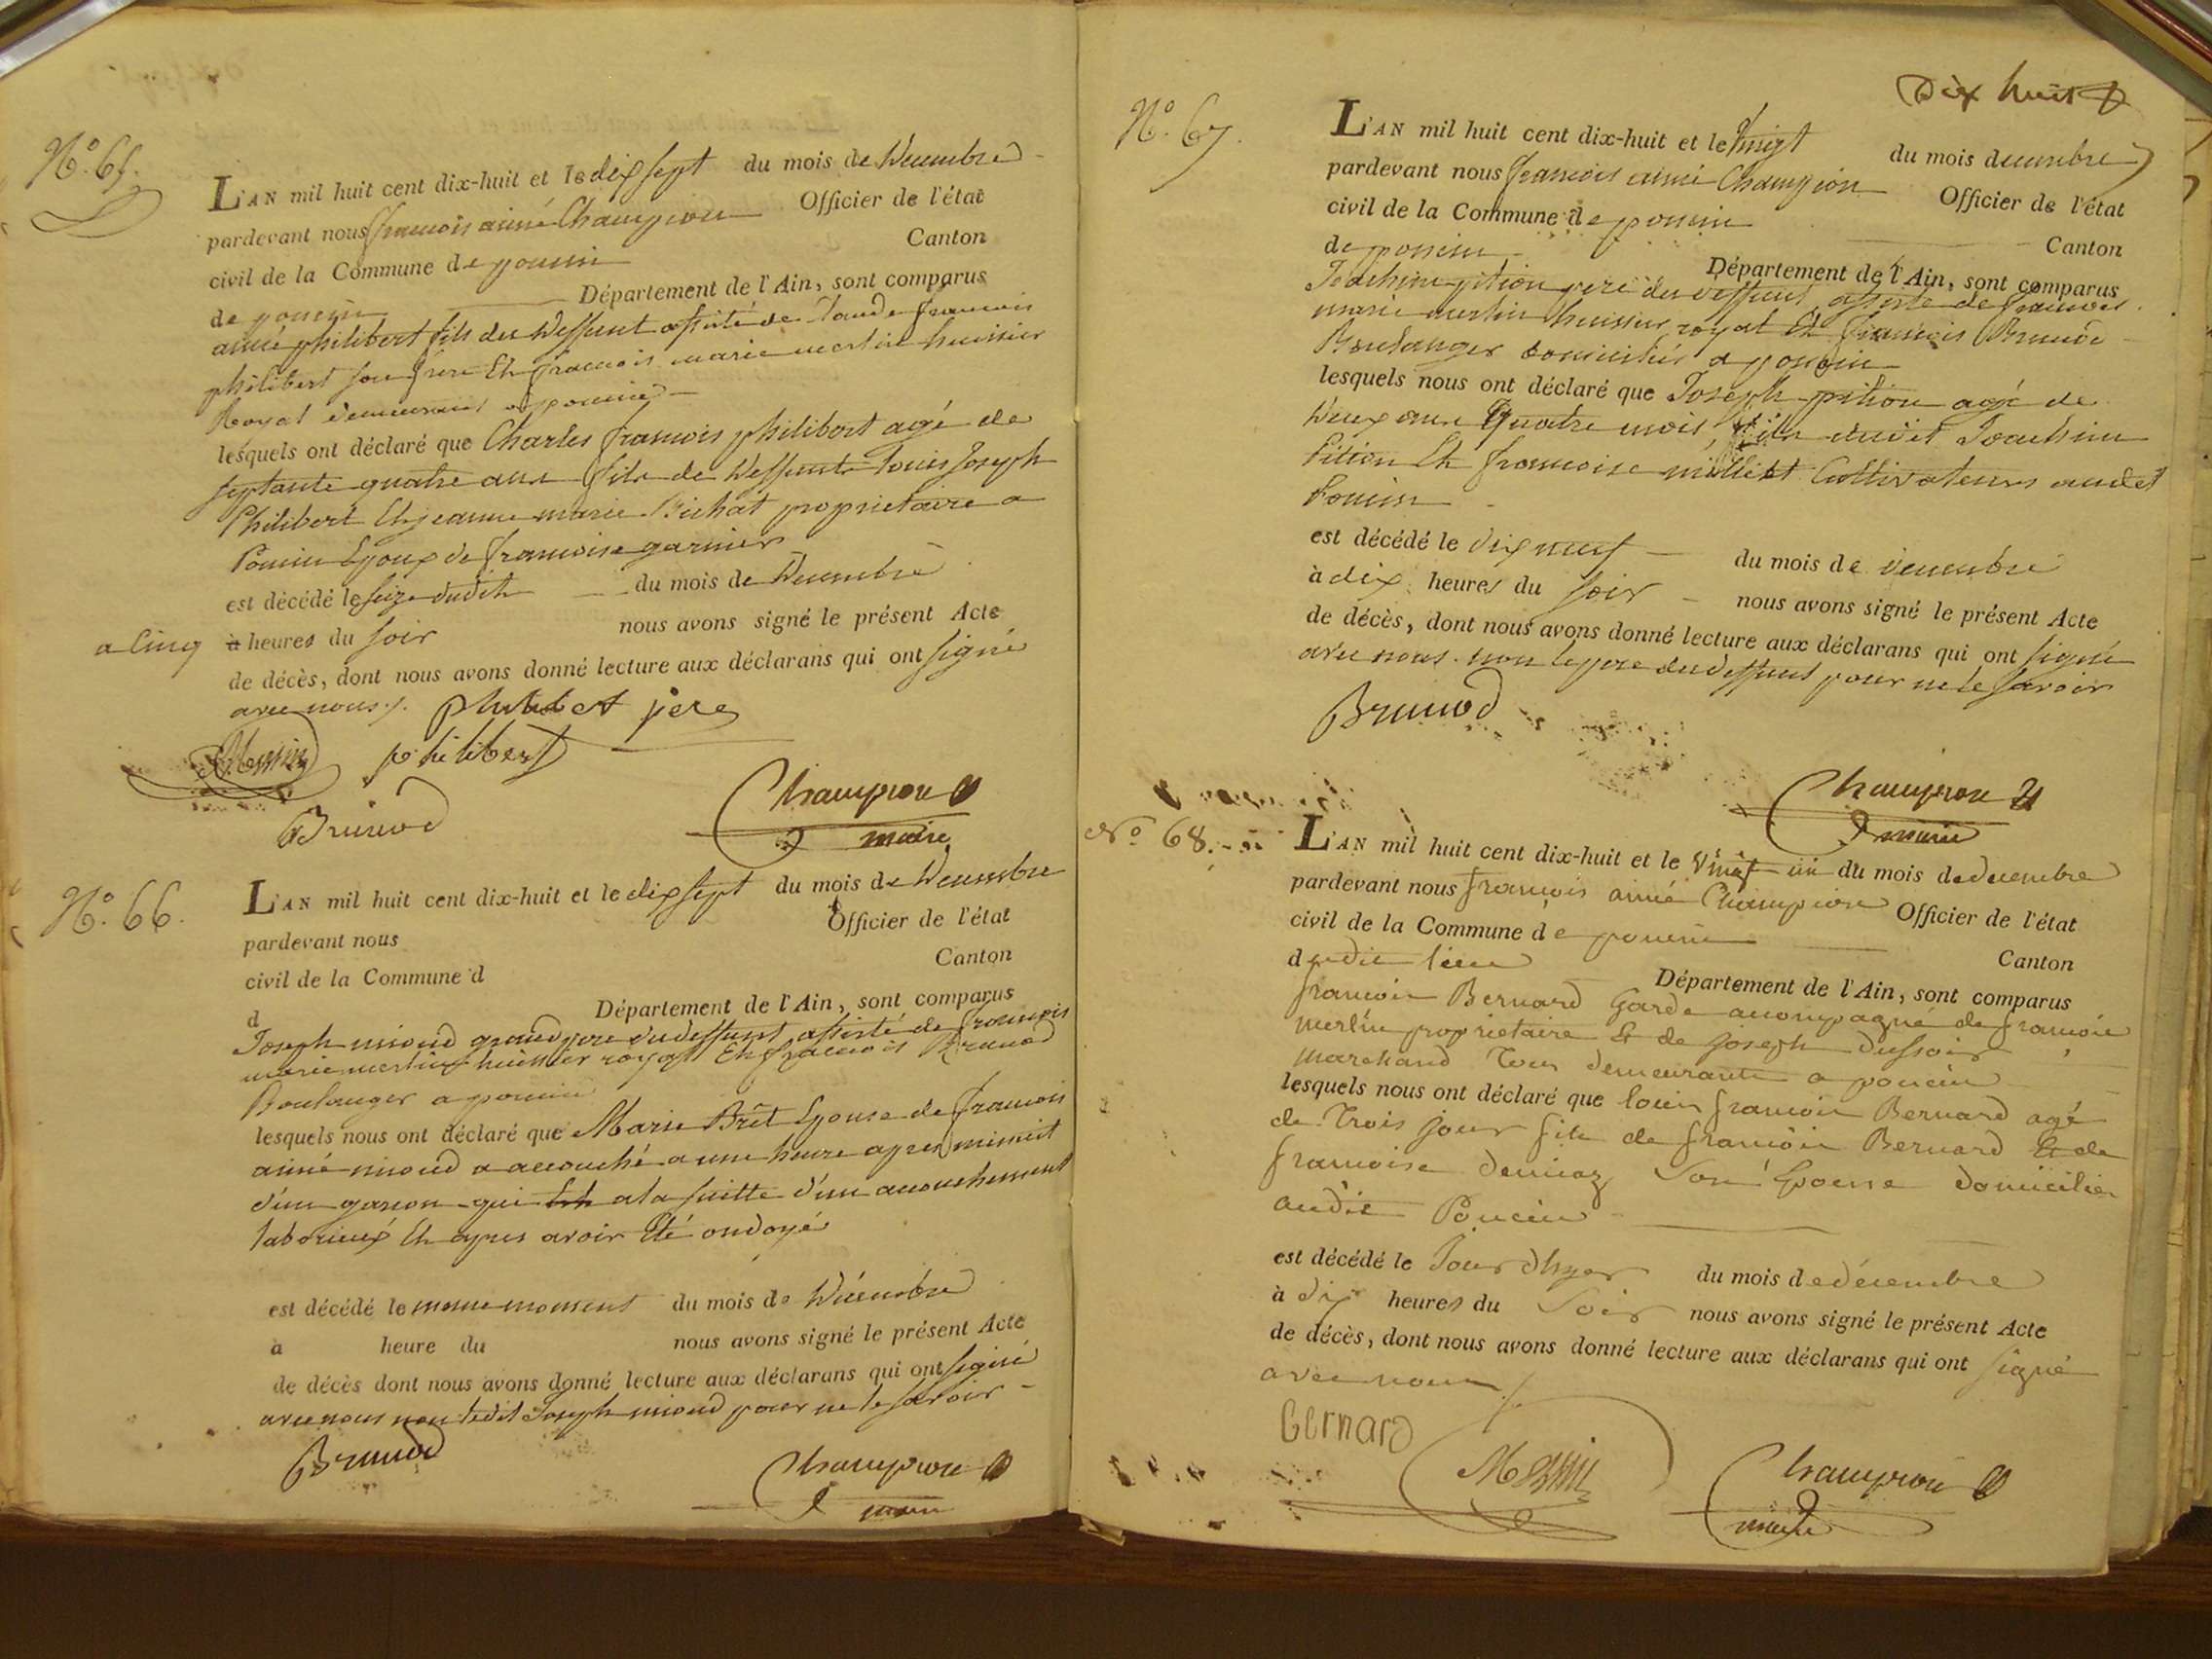 N.° 65.
L'AN mil huit cent dix-huit et le dix sept du mois de Decembre
pardevant nous francois aimé Champion Officier de l'état
civil de la Commune de poncin Canton
de poncin Département de l'Ain, sont comparus
aimé philibert fils du deffunt assisté de Claude francois
philibert son frere Et francois marie merlin huissier
Royal demeurant a poncin
lesquels ont déclaré que Charles francois philibert agé de
septante quatre ans fils de deffunts Louis Joseph
Philibert Et jeanne marie Bichat proprietaire a
Poncin Epoux de francoise garnier
est décédé le seize dudit du mois de Decembre
a Cinq à heures du soir nous avons signé le présent Acte
de décès, dont nous avons donné lecture aux déclarans qui ont signé
avec nous ./. philibert pere
Merlin philibert
Brunod Champion
maire
N.° 66.
L'AN mil huit cent dix-huit et le dix sept du mois de Decembre
pardevant nous Officier de l'état
civil de la Commune d Canton
d Département de l'Ain, sont comparus
Joseph mioud grand pere du deffunt assisté de francois
marie merlin huissier royal Et francois Brunod
Boulanger a poncin
lesquels nous ont déclaré que Marie Brêt Epouse de francois
aimé mioud a accouché a une heure apres minuit
d'un garson qui Est a la suitte d'un accouchement
laborieux Et apres avoir Eté ondoyé
est décédé le meme moment du mois de Décembre
à heure du nous avons signé le présent Acte
de décès dont nous avons donné lecture aux déclarans qui ont signé
avec nous non ledit Joseph mioud pour ne le savoir
Brunod Champion
maire
Dix huit
N.° 67.
L'AN mil huit cent dix-huit et le vingt du mois decembre
pardevant nous francois aimé Champion Officier de l'état
civil de la Commune de poncin Canton
de poncin Département de l'Ain, sont comparus
Joachim pition pere du deffunt assisté de francois
marie merlin huissier royal Et francois Brunod
Boulanger domiciliés a poncin
lesquels nous ont déclaré que Joseph pition agé de
deux ans quatre mois, fils dudit Joachim
Pition Et francoise millet Cultivateurs audit
Poncin
est décédé le dix neuf du mois de decembre
à dix heures du soir nous avons signé le présent Acte
de décès, dont nous avons donné lecture aux déclarans qui ont signé
avec nous non le pere du deffunt pour ne le savoir
Brunod
Champion
maire
N.° 68.
L'AN mil huit cent dix-huit et le Vingt un du mois de decembre
pardevant nous françois aimé Champion Officier de l'état
civil de la Commune de poncin Canton
dudit lieu Département de l'Ain, sont comparus
francois Bernard Garde acompagné de francois
merlin proprietaire Et de joseph
marchand Tous demeurants a poncin
lesquels nous ont déclaré que louis francois Bernard agé
de Trois jour fils de francois Bernard Et de
francoise Son Epouse domicilier
audit Poncin
est décédé le Jour dhyer du mois de décembre
à dix heures du Soir nous avons signé le présent Acte
de décès, dont nous avons donné lecture aux déclarans qui ont signé
avec nous ./.
Bernard
Merlin Champion
maire